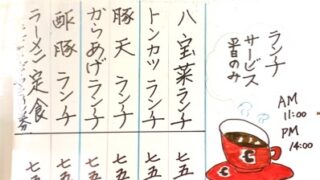 ランチ
サービス
平日のみ
AM
11:00
PM
14:00
八宝菜ランチ
トンカツランチ
豚天ランチ
からあげランチ
酢豚ランチ
ラーメン定食
七五
七五
七五
七五
七五
七五